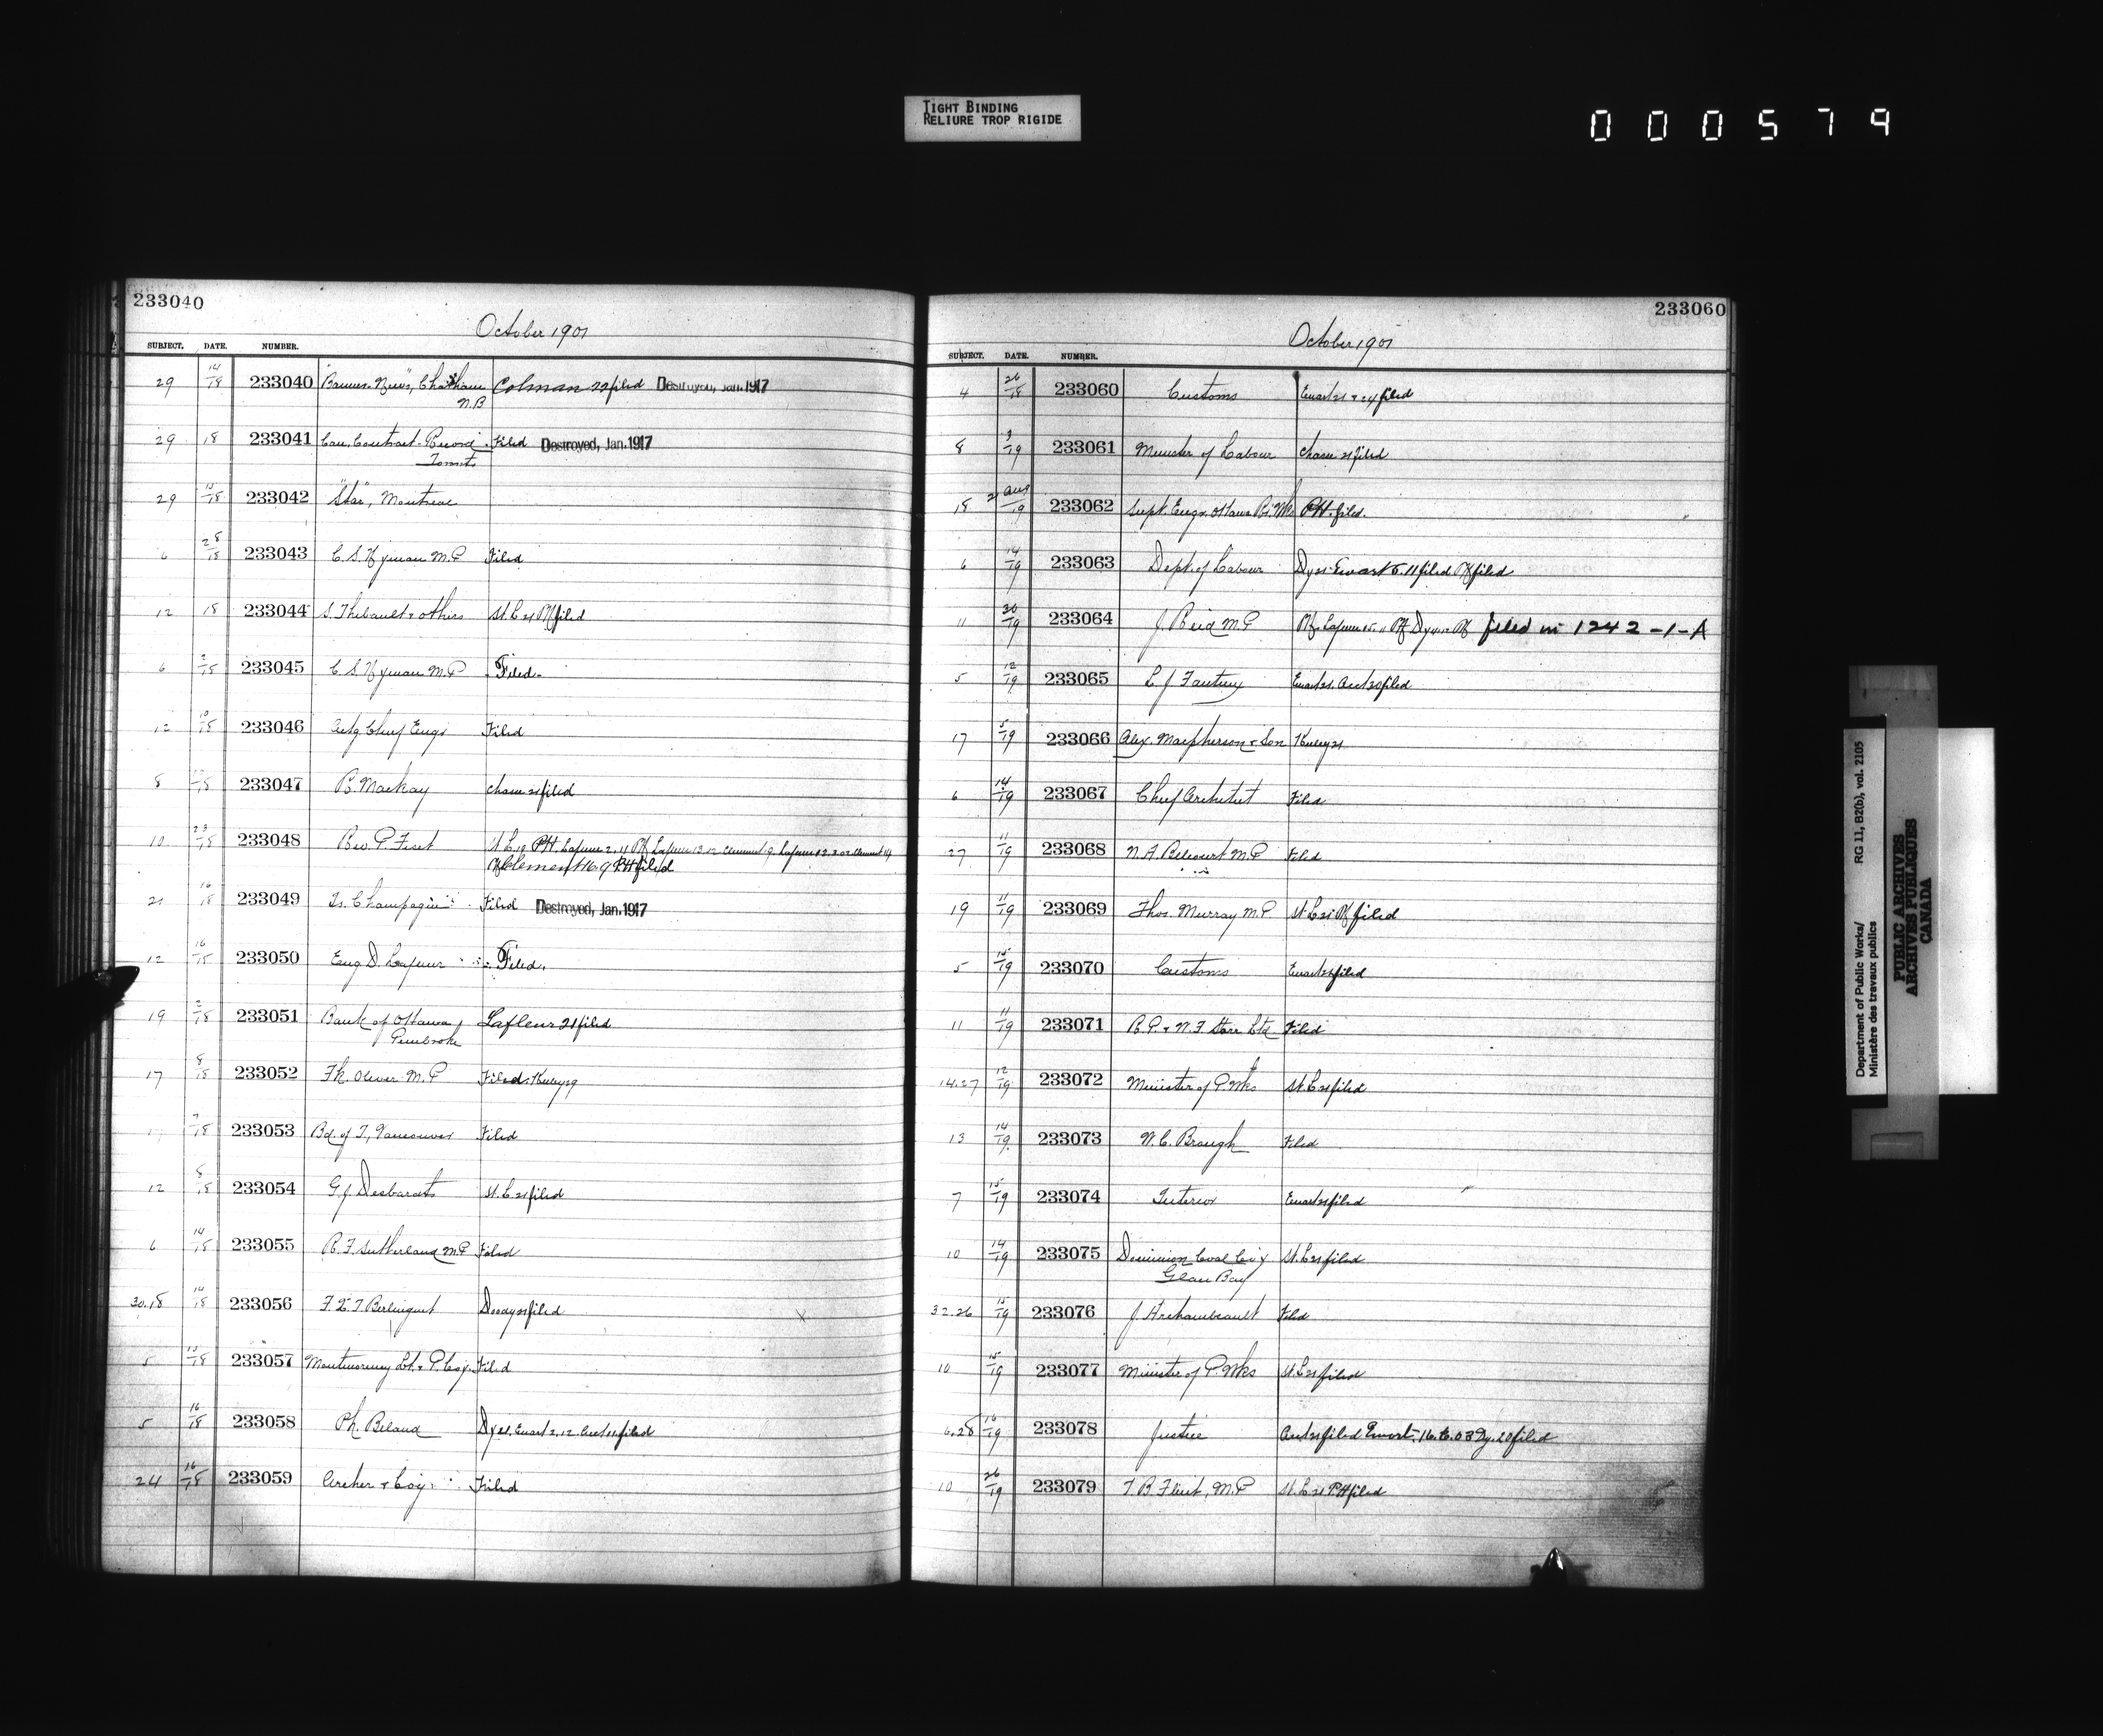 TIGHT BINDING
RELIURE TROP RIGIDE
000579
233040
October 1901
SUBJECT. DATE. NUMBER.
29 14/18 233040 "Banner-News", Chatham Colman 22 filed Destroyed, Jan. 1917
N.B
29 18 233041 Can. Contract Record Filed Destroyed, Jan. 1917
Toronto
29 15/18 233042 "Star", Montreal
6 28/18 233043 C. S. Hyman M.P Filed
12 18 233044 S. Thibault & others St. L 21 filed
6 2/18 233045 C S Hyman M.P Filed.
12 10/18 233046 Actg Chief Engr Filed
8 /18 233047 R. Mackay 21 filed
10 23/18 233048 Fiset
Clement 16.9 P.H filed
21 16/18 233049 Champagne Filed Destroyed, Jan. 1917
12 16/18 233050 Eug D. Lafleur Filed.
19 2/18 233051 Bank of Ottawa, Lafleur 21 filed
Pembroke
17 8/18 233052 Fk. Oliver M.P Filed
17 7/18 233053 Bd. of T, Vancouver Filed
12 8/18 233054 G J Desbarats St. L 21 filed
6 14/18 233055 R. F Sutherland M.P Filed
30.18 14/18 233056 Berlinguet filed
5 15/18 233057 Montmorency Lt. & P. Coy. Filed
5 16/18 233058 Ph. Beland Dy 21. Ewart 2.12. filed
24 16/18 233059 Archer & Coy. Filed
233060
October 1901
SUBJECT. DATE. NUMBER.
4 26/18 233060 Customs Ewart 21 & 24 filed
8 3/19 233061 Minister of Labour 21 filed
18 21 Aug/19 233062 Supt. Engr. Ottawa PH. filed.
6 14/19 233063 Dept. of Labour Dy 21 Ewart 5.11 filed filed
11 30/19 233064 J. Reid M.P filed in 1242-1-A
5 12/19 233065 L J Ewart 21. filed
17 5/19 233066 Alex. Macpherson & Son
6 14/19 233067 Chief Architect Filed
27 11/19 233068 N. A. Belcourt M.P Filed
19 11/19 233069 Thos. Murray M.P St. L 21 filed
5 15/19 233070 Customs Ewart 21 filed
11 11/19 233071 R. P. & W. F. Starr Ltd Filed
14.27 12/19 233072 Minister of P. Wks St. L 21 filed
13 14/19 233073 W. C. Brough Filed
7 15/19 233074 Interior Ewart 21 filed
10 14/19 233075 Dominion Coal Co'y St. L 21 filed
Glace Bay
32.26 15/19 233076 J. Archambeault Filed
10 15/19 233077 Minister of P. Wks St. L 21 filed
6.28 16/19 233078 Justice filed Ewart. Dy. 20 filed
10 26/19 233079 T. B. Flint, M.P St. L 21 PH filed
Department of Public Works/ RG 11, B2(b), vol. 2105
Ministère des travaux publics
PUBLIC ARCHIVES
ARCHIVES PUBLIQUES
CANADA